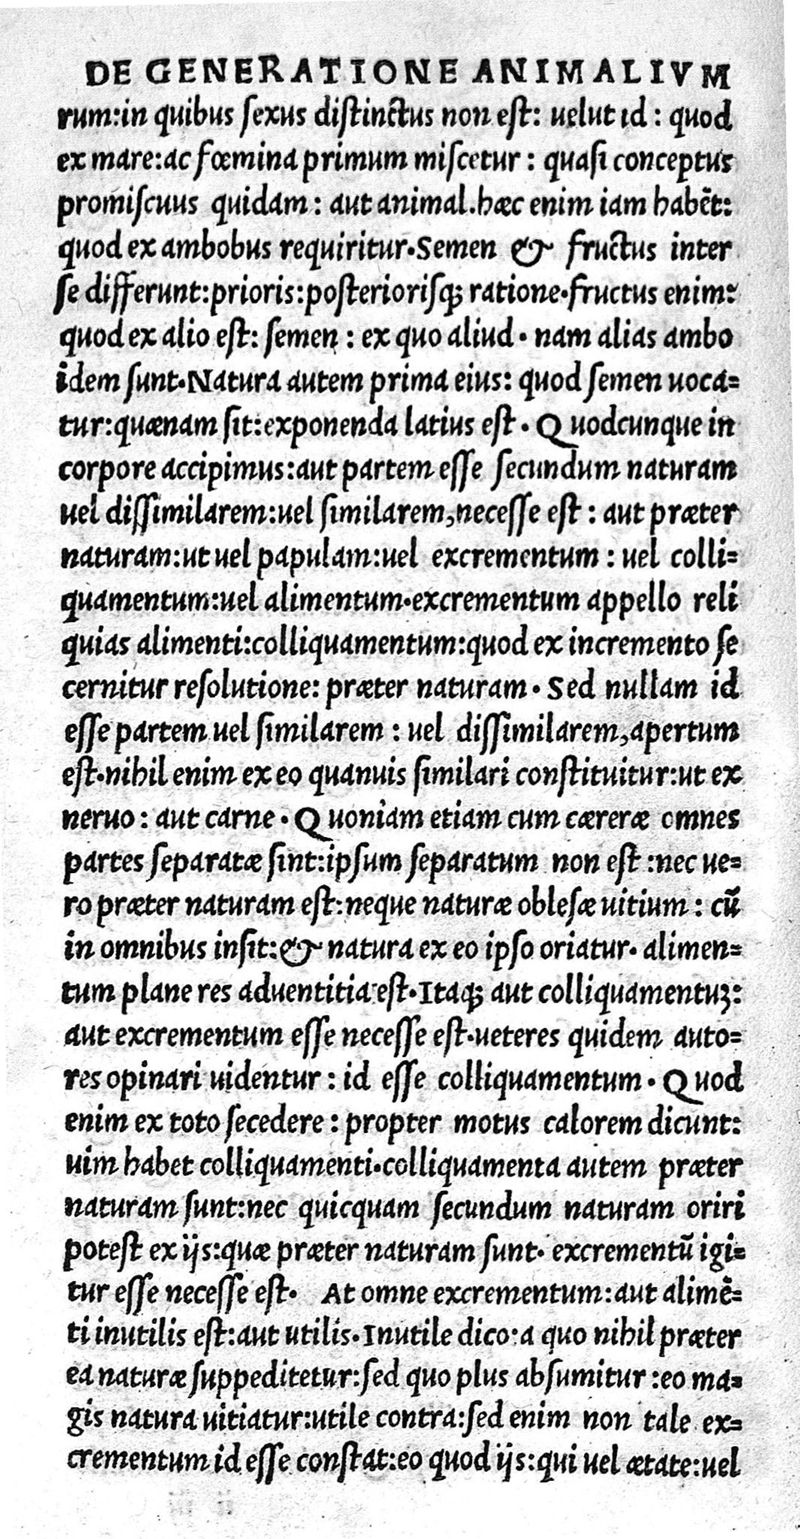 DE GENERATIONE ANIMALIVM
rum:in quibus ſexus diſtinctus non eſt: uelut id : quod
ex mare:ac fœmina primum miſcetur : quaſi conceptus
promiſcuus quidam : aut animal.hæc enim iam habẽt:
quod ex ambobus requiritur.Semen & fructus inter
ſe differunt:prioris:poſterioriſq; ratione.fructus enim:
quod ex alio eſt: ſemen : ex quo aliud. nam alias ambo
idem ſunt.Natura autem prima eius: quod ſemen uoca=
tur:quænam ſit:exponenda latius eſt. Quodcunque in
corpore accipimus:aut partem eſſe ſecundum naturam
uel diſſimilarem:uel ſimilarem,neceſſe eſt : aut præter
naturam:ut uel papulam:uel excrementum : uel colli=
quamentum:uel alimentum.excrementum appello reli
quias alimenti:colliquamentum:quod ex incremento ſe
cernitur reſolutione: præter naturam. Sed nullam id
eſſe partem uel ſimilarem : uel diſſimilarem,apertum
eſt.nihil enim ex eo quanuis ſimilari conſtituitur:ut ex
neruo : aut carne. Quoniam etiam cum cæreræ omnes
partes ſeparatæ ſint:ipſum ſeparatum non eſt :nec ue=
ro præter naturam eſt:neque naturæ obleſæ uitium : cũ
in omnibus inſit:& natura ex eo ipſo oriatur. alimen=
tum plane res aduentitia eſt.Itaq; aut colliquamentuꝫ:
aut excrementum eſſe neceſſe eſt.ueteres quidem auto=
res opinari uidentur : id eſſe colliquamentum. Quod
enim ex toto ſecedere : propter motus calorem dicunt:
uim habet colliquamenti.colliquamenta autem præter
naturam ſunt:nec quicquam ſecundum naturam oriri
poteſt ex ijs:quæ præter naturam ſunt. excrementũ igi=
tur eſſe neceſſe eſt. At omne excrementum:aut alimẽ=
ti inutilis eſt:aut utilis.Inutile dico:a quo nihil præter
ea naturæ ſuppeditetur:ſed quo plus abſumitur :eo ma=
gis natura uitiatur:utile contra:ſed enim non tale ex=
crementum id eſſe conſtat:eo quod ijs:qui uel ætate:uel